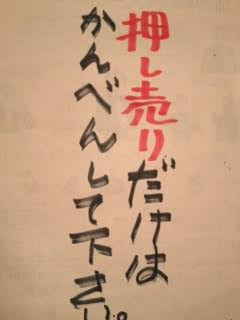 押し売りだけは
かんべんして下さい。